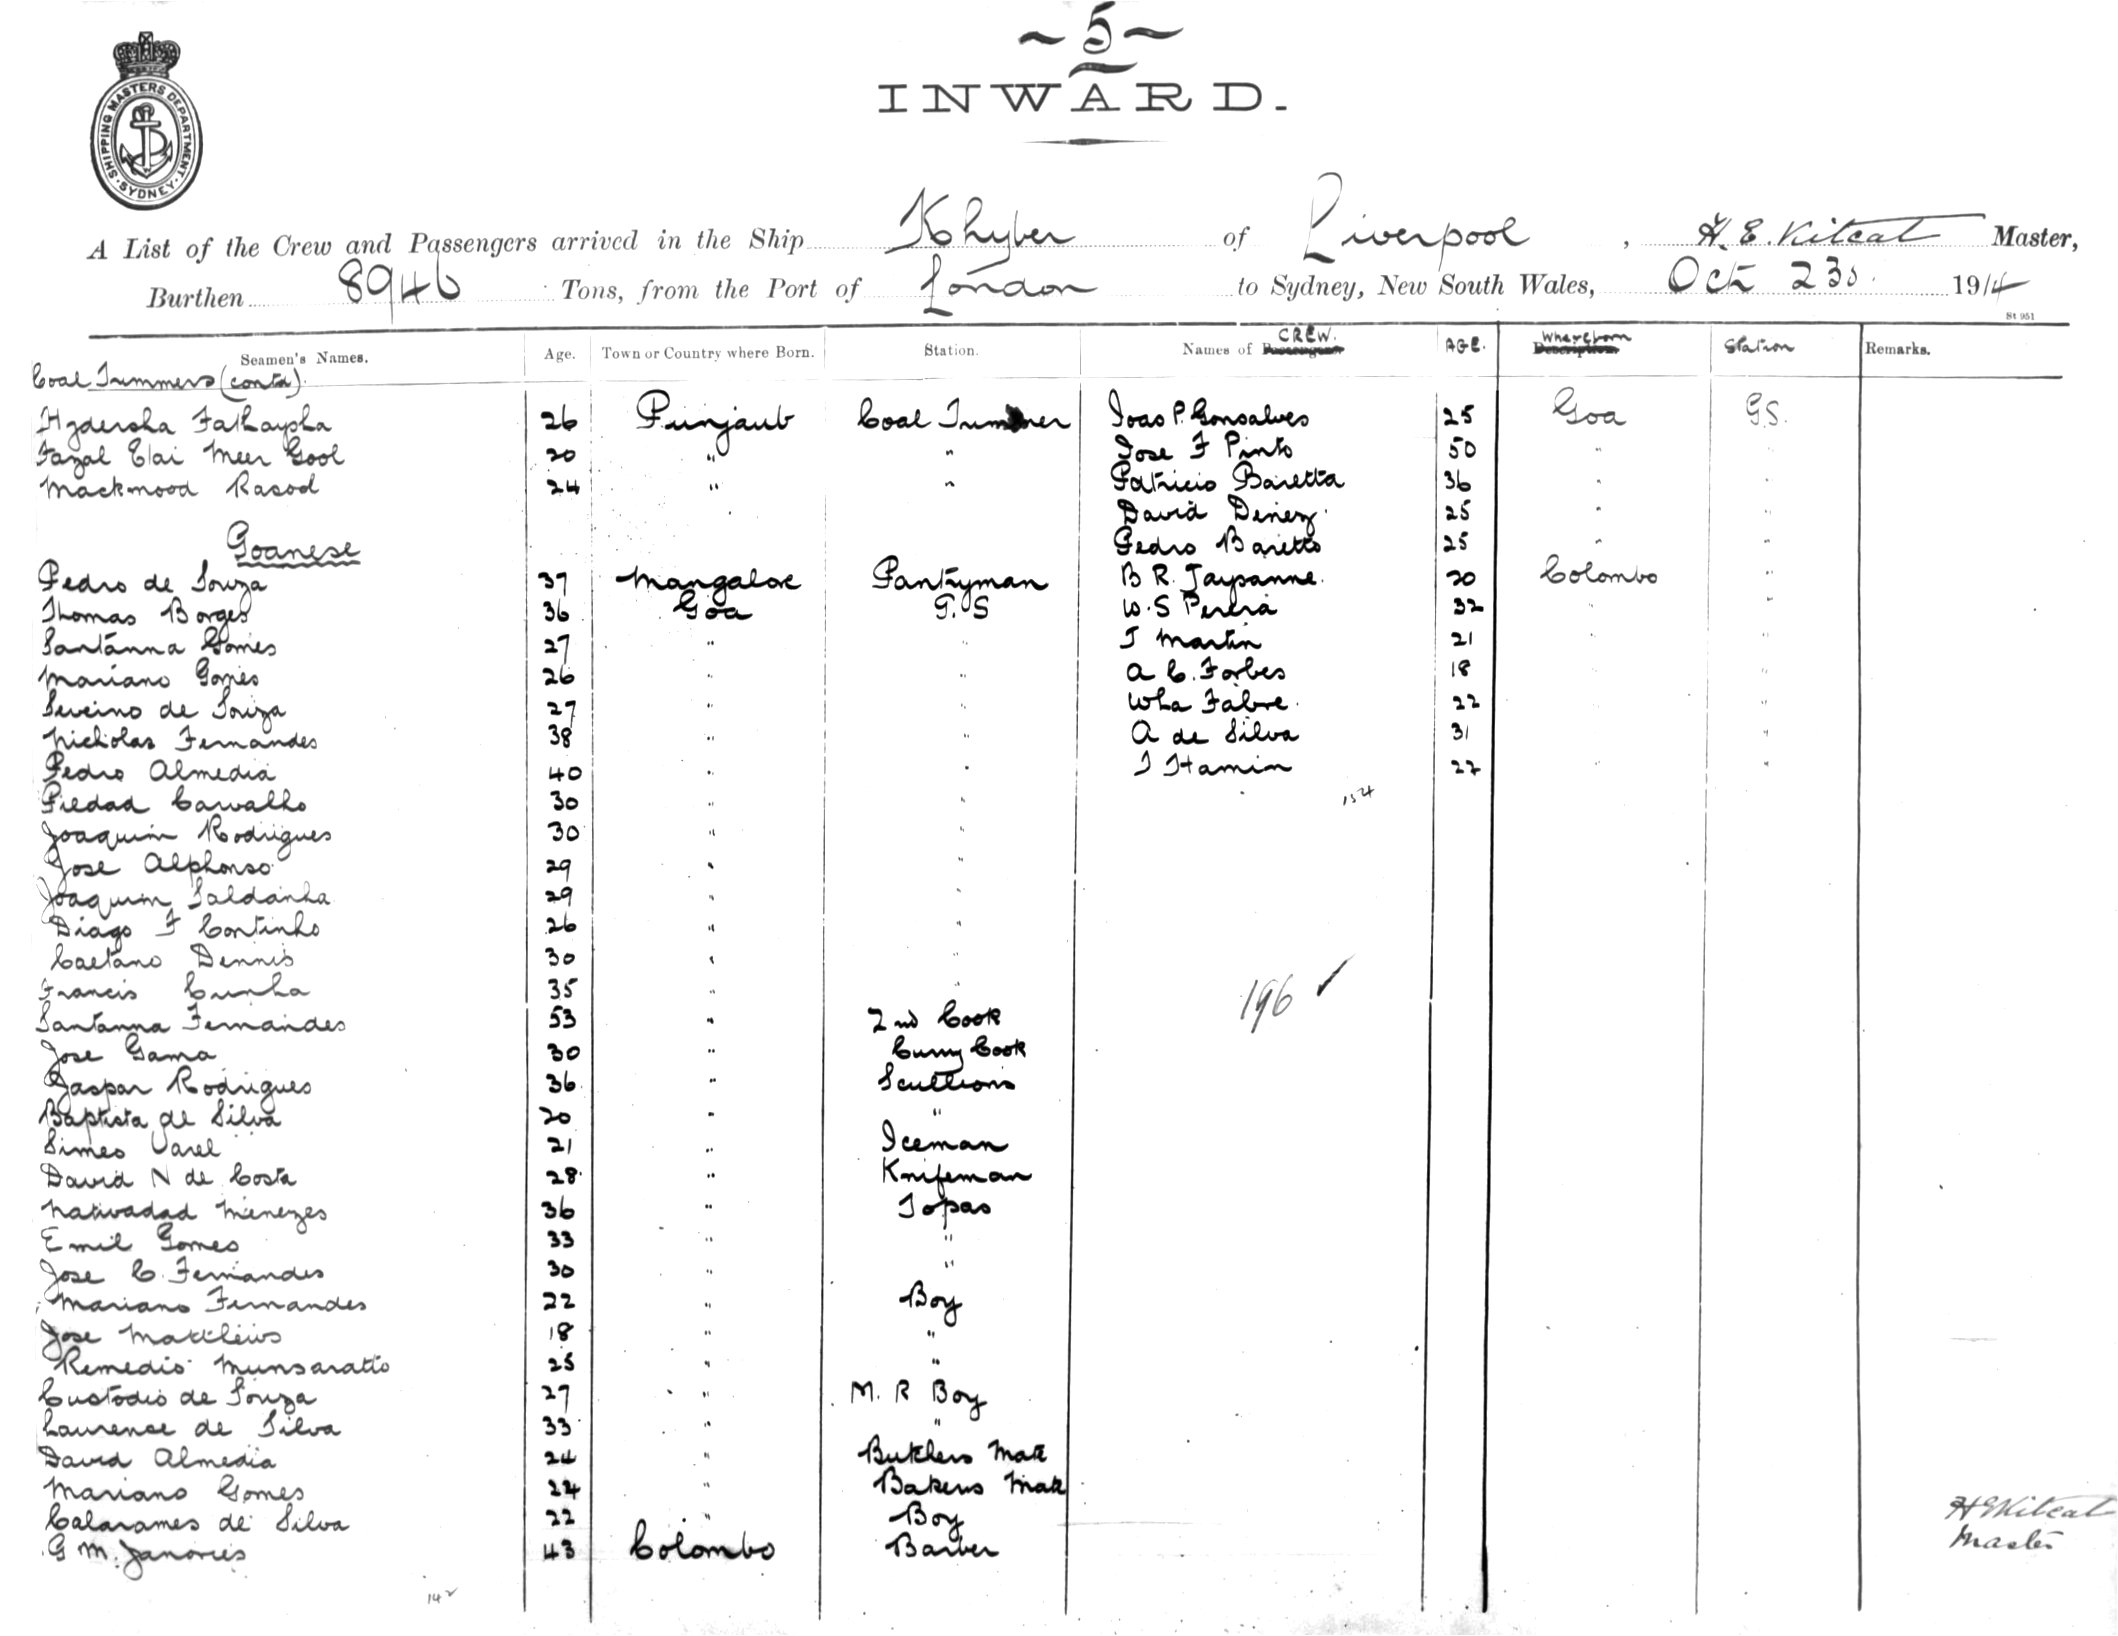 ~ 5 ~
INWARD.
SHIPPING MASTERS DEPARTMENT. SYDNEY
A List of the Crew and Passengers arrived in the Ship Khyber of Liverpool, H. E. Kitcat Master,
Burthen 8946 Tons, from the Port of London to Sydney, New South Wales, Oct 23d. 1914
St 951
Seamen's Names. Age. Town or Country where Born. Station. Names of CREW. AGE. Where born Station Remarks.
Coal Trimmers (contd).
Hydersha Fathaysha 26 Punjaub Coal Trimmer Joao P. Gonsalves 25 Goa G.S.
Fazal Elai Meer Gool 20 " " Jose F Pinto 50 " "
Mackmood Rasool 24 " " Patricio Baretta 36 " "
David Deniez 25 " "
Goanese Pedro Baretto 25 " "
Pedro de Souza 37 Mangalore Pantryman B R. Jaysanne. 20 Colombo "
Thomas Borges 36 Goa G. S W. S Pereira 32 " "
Santanna Gomes 27 " " J Martin 21 " "
Mariano Gomes 26 " " A C. Forbes 18 " "
Severino de Souza 27 " " Fabre. 22 " "
Nicholas Fernandes 38 " " A de Silva 31 " "
Pedro Almedia 40 " " J Hamin 22 " "
Piedad Carvalho 30 " " 154
Joaquim Rodrigues 30 " "
Jose Alphonso 29 " "
Joaquim Saldanha 29 " "
Diago F Continho 26 " "
Caetano Dennis 30 " "
Francis Cunha 35 " " 196 ✓
Santanna Fernandes 53 " 2nd Cook
Jose Gama 30 " Curry Cook
Gaspar Rodrigues 36 " Scullions
Baptista de Silva 20 " "
Simes Varel 21 " Iceman
David N de Costa 28 " Knifeman
Nativadad Menezes 36 " Topas
Emil Gomes 33 " "
Jose C. Fernandes 30 " "
Mariano Fernandes 22 " Boy
Jose Matthews 18 " "
Remedio Munsaratto 25 " "
Custodio de Souza 27 " M. R Boy
Laurense de Silva 33 " "
David Almedia 24 " Butchers Mate
Mariano Gomes 24 " Bakers Mate
Calarames de Silva 22 " Boy
G M. Janories 43 Colombo Barber
H E Kitcat
Master
142